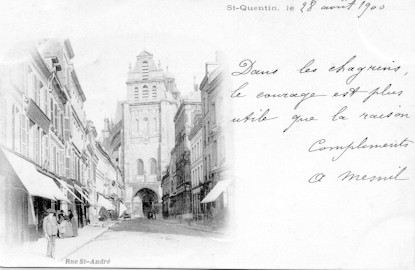 St-Quentin, le 28 août 1900
Dans les chagrins,
le courage est plus
utile que la raison
Compliments
A Mesnil
Rue St-André